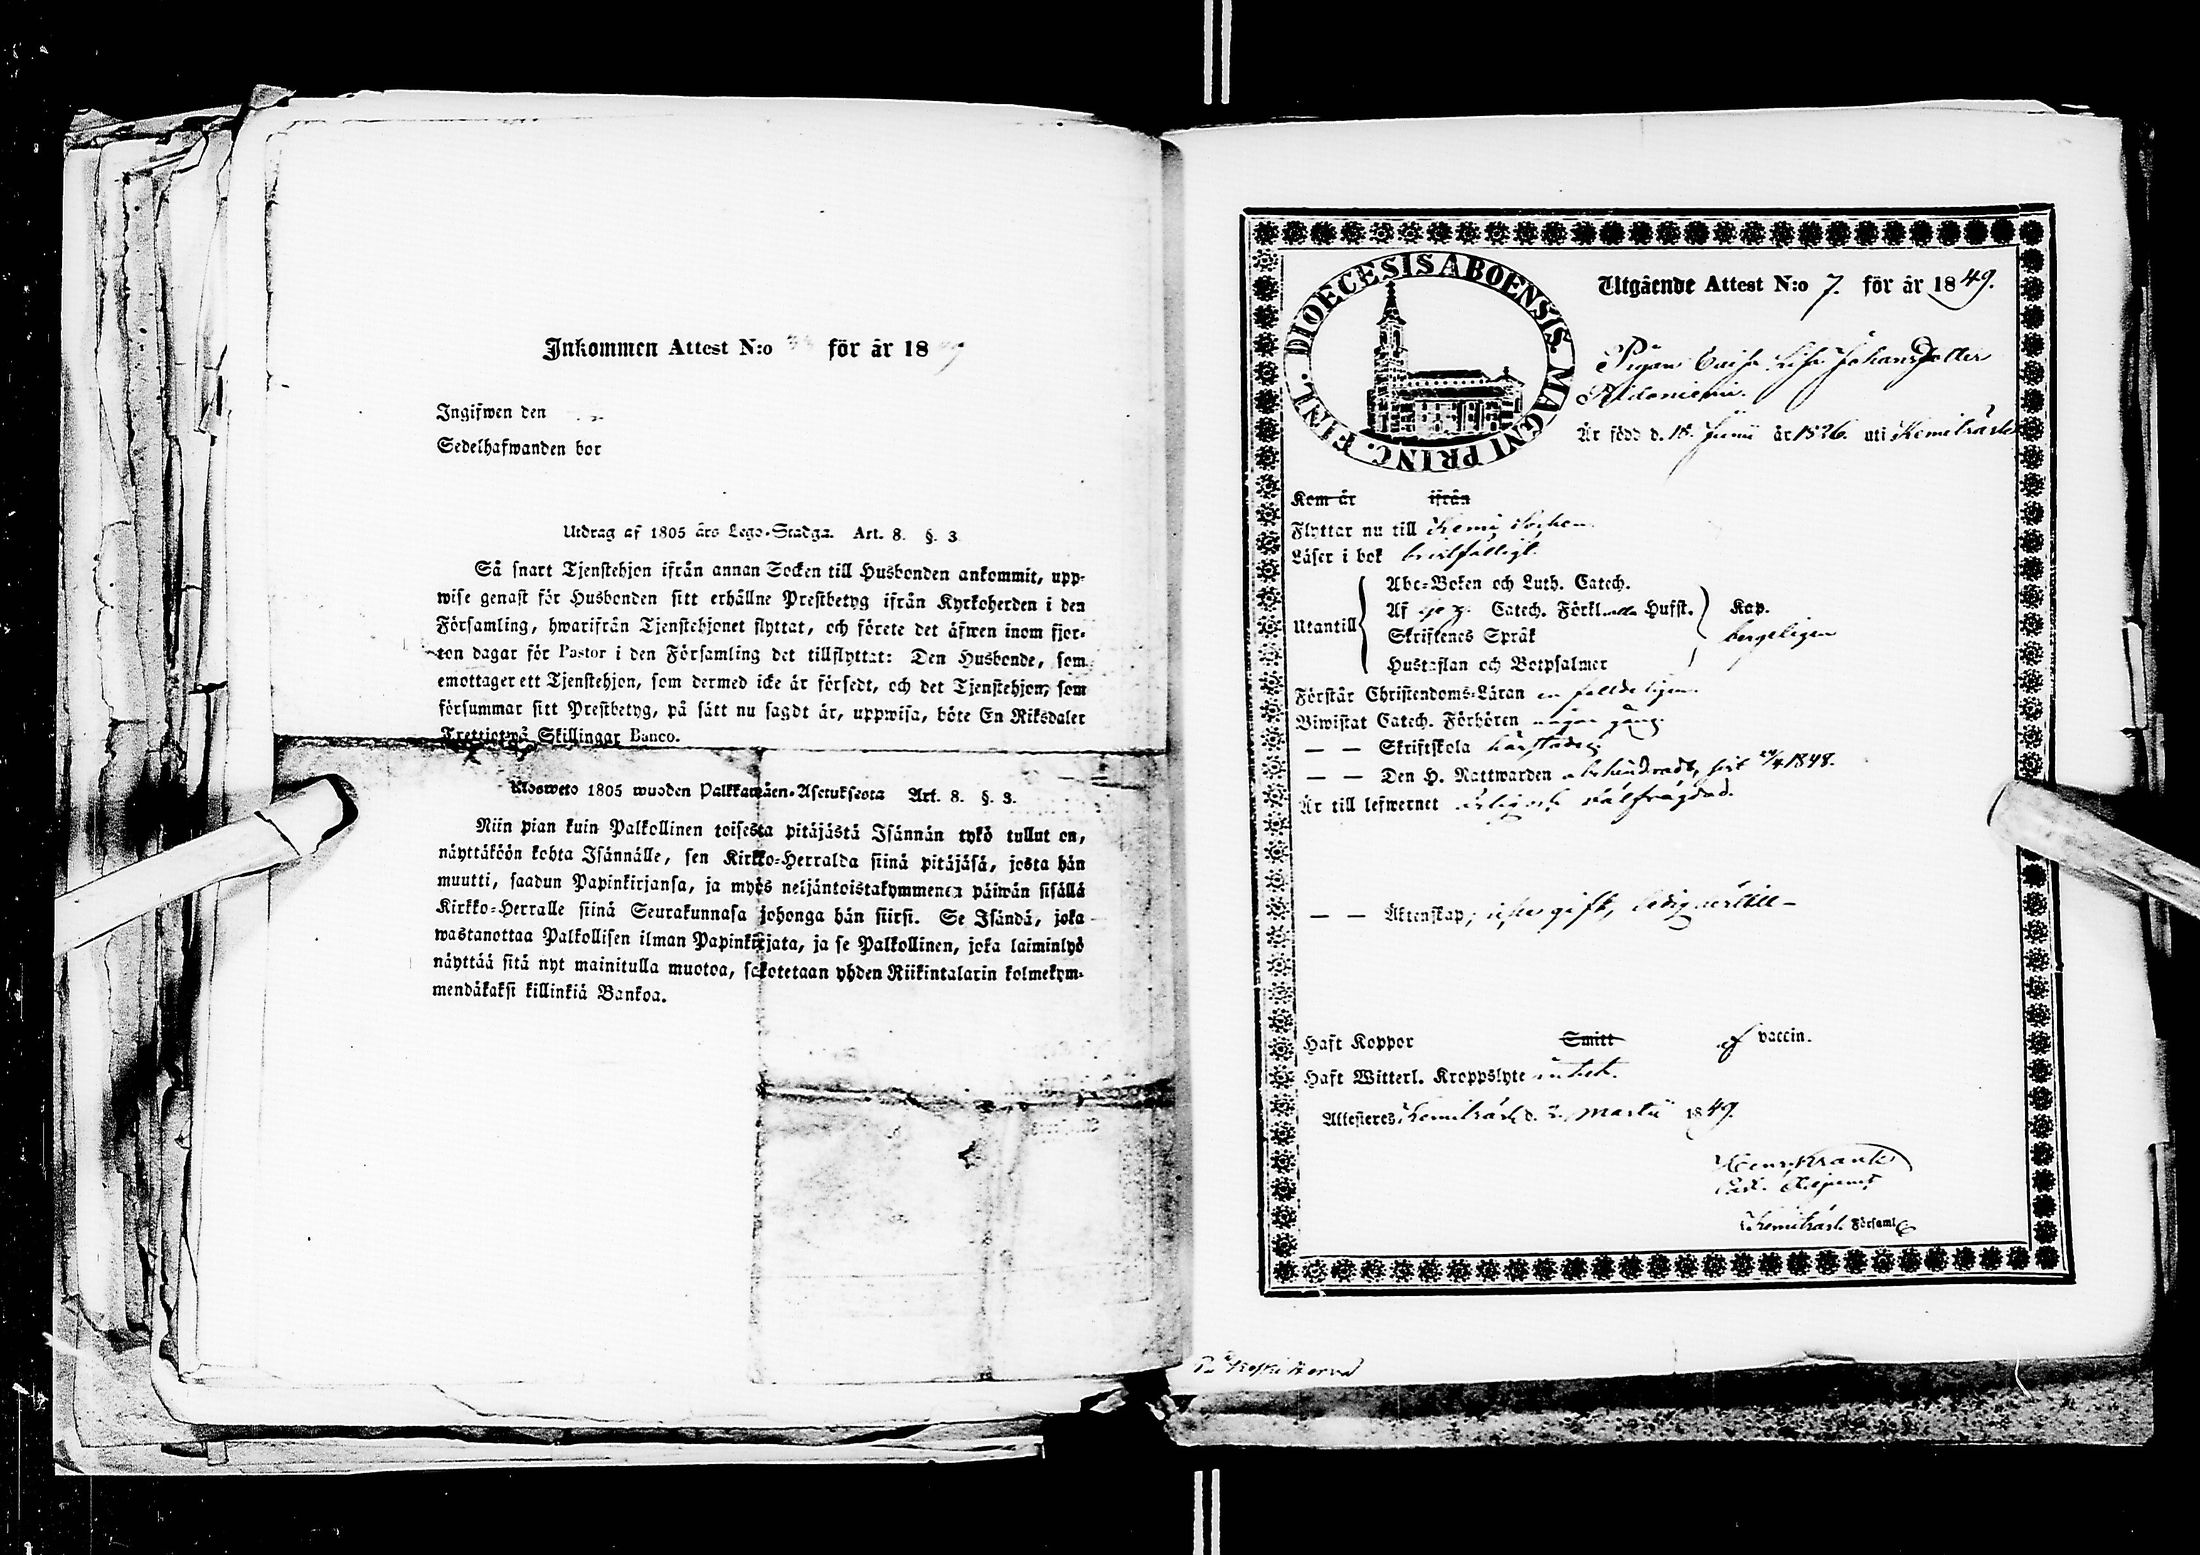 Inkommen Attest N:o för år 18
Ingifwen den
Sedelhafwanden bor
Utdrag af 1805 års Lego-Stadga. Art. 8. §. 3
Så snart Tjenstehjon ifrån annan Socken till Husbonden ankommit, upp-
wise genast för Husbonden sitt erhållne Prestbetyg ifrån Kyrkoherden i den
Församling, hwarifrån Tjenstehjonet flyttat, och förete det äfwen inom fjor-
ton dagar för Pastor i den Församling det tillflyttat: Den Husbonde, som
emottager ett Tjenstehjon, som dermed icke är försedt, och det Tjenstehjon, som
försummar sitt Prestbetyg, på sätt nu sagdt är, uppwisa, böte En Riksdaler
Trettiotwå Skillingar Banco.
Uloswето 1805 wuoden Palkkawäen-Asetuksesta Art. 8. §. 3.
Niin pian kuin Palkollinen toisesta pitäjästä Isännän tykö tullut on,
näyttäköön kohta Isännälle, sen Kirkko-Herralda siinä pitäjäsä, josta hän
muutti, saadun Papinkirjansa, ja myös neljäntoistakymmenen päiwän sisällä
Kirkko-Herralle siinä Seurakunnasa johonga hän siirsi. Se Isändä, joka
wastanottaa Palkollisen ilman Papinkirjata, ja se Palkollinen, joka laiminlyö
näyttää sitä nyt mainitulla muotoa, sakotetaan yhden Riikintalarin kolmekym-
mendäkaksi killinkiä Bankoa.
DIOECESIS ABOENSIS. MAGNI PRINC. FINL.
Utgående Attest N:o 7. för år 1849.
Pigan Caisa Lisa Johansdotter
Är född d. 18. Junii år 1826. uti Kemiträsk
Kom är ifrån
Flyttar nu till Kemi Socken
Läser i bok
Utantill
Abc-Boken och Luth. Catech.
Af Catech. Förkl. Hufst.
Skriftenes Språk
Hustaflan och Botpsalmer
Kap.
Förstår Christendoms-Läran
Biwistat Catech. Förhören någon gång.
— — Skriftskola
— — Den H. Nattwarden 1848.
Är till lefwernet välfrägdad.
— — Äktenskap, gift, ledig
Haft Koppor Smitt af vaccin.
Haft Witterl. Kroppslyte intet.
Attesteres Kemiträsk d. 2. Martii 1849.
Kemiträsk Församl